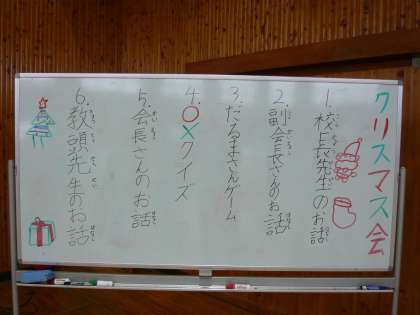 クリスマス会
1.校長先生のお話
2.副会長さんのお話
3.だるまさんゲーム
4.○×クイズ
5.会長さんのお話
6.教頭先生のお話